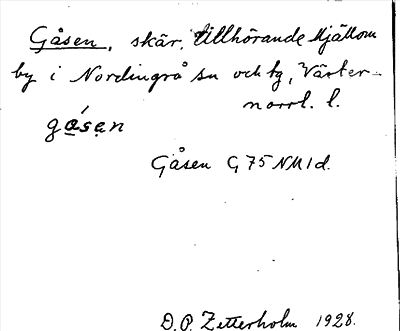 Gåsen, skär, tillhörande Mjällom
by i Nordingrå sn och tg, Väster-
norrl. l.
gåsan
Gåsen G 75 NM 1 d.
D.O. Zetterholm 1928.